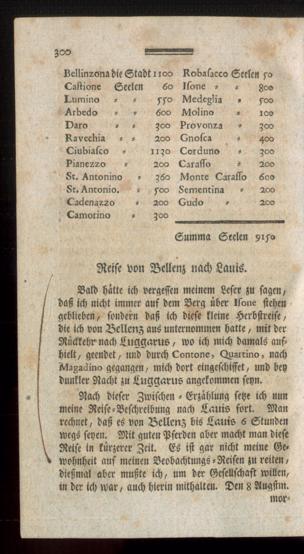 300
Bellinzona die Stadt 1100 Robasacco Seelen 50
Castione Seelen 60 Isone " 800
Lumino " " 550 Medeglia " 500
Arbedo " " 600 Molino " 100
Daro " " 300 Provonza " 300
Ravechia " " 200 Gnosca " 400
Ciubiasco " 1130 Corduno " 300
Pianezzo " 200 Carasso " 200
St. Antonino " 360 Monte Carasso 600
St. Antonio. " 500 Sementina " 200
Cadenazzo " 200 Gudo " 200
Camorino " 300
Summa Seelen 9150
Reise von Bellenz nach Lauis.
Bald hätte ich vergessen meinem Leser zu sagen,
daß ich nicht immer auf dem Berg über Isone stehen
geblieben, sondern daß ich diese kleine Herbstreise,
die ich von Bellenz aus unternommen hatte, mit der
Rückkehr nach Luggarus, wo ich mich damals auf-
hielt, geendet, und durch Contone, Quartino, nach
Magadino gegangen, mich dort eingeschiffet, und bey
dunkler Nacht zu Luggarus angekommen seyn.
Nach dieser Zwischen-Erzählung setze ich nun
meine Reise-Beschreibung nach Lauis fort. Man
rechnet, daß es von Bellenz bis Lauis 6 Stunden
wegs seyen. Mit guten Pferden aber macht man diese
Reise in kürzerer Zeit. Es ist gar nicht meine Ge-
wohnheit auf meinen Beobachtungs-Reisen zu reiten,
dießmal aber mußte ich, um der Gesellschaft willen,
in der ich war, auch hierin mithalten. Den 8 Augstm.
mor-